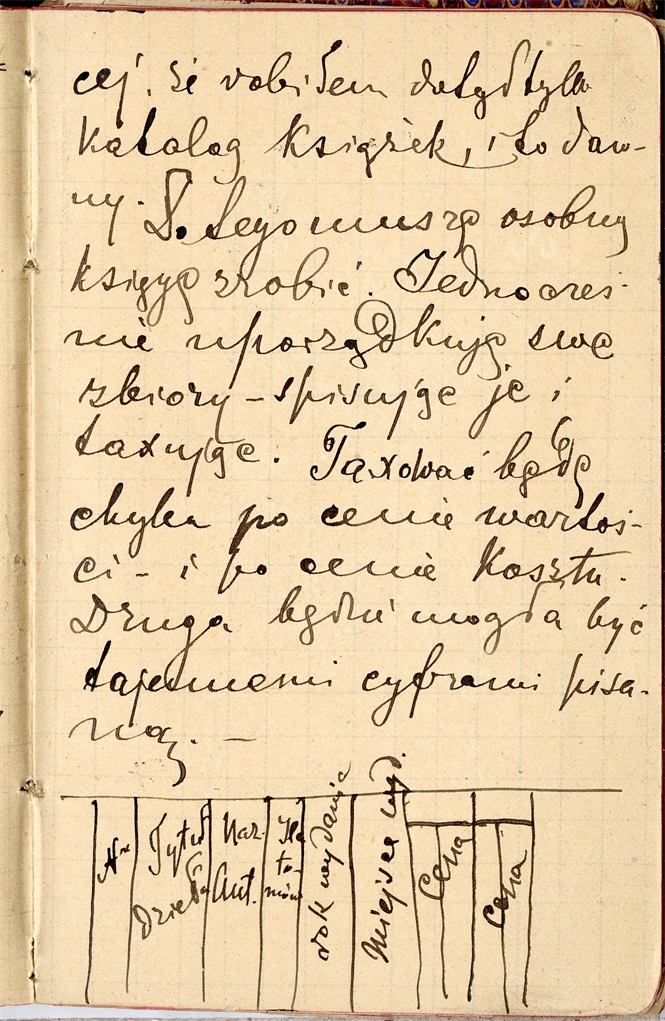 cej, że robiłem dotychtyla
katalog książek, i to daw-
ny. Do tego muszę osobną
księgę zrobić. Jednocześ-
nie uporządkuję swe
zbiory – spisując je i
taxując. Taxować będę
chyba po cenie wartoś-
ci – i po cenie kosztu.
Druga będzie mogła być
tajemnemi cyframi pisa-
ną. –
Nr
Tytuł
Dzieła
Naz.
Aut.
Ile
to-
mów
rok wydania
Miejsce wyd.
Cena
Cena